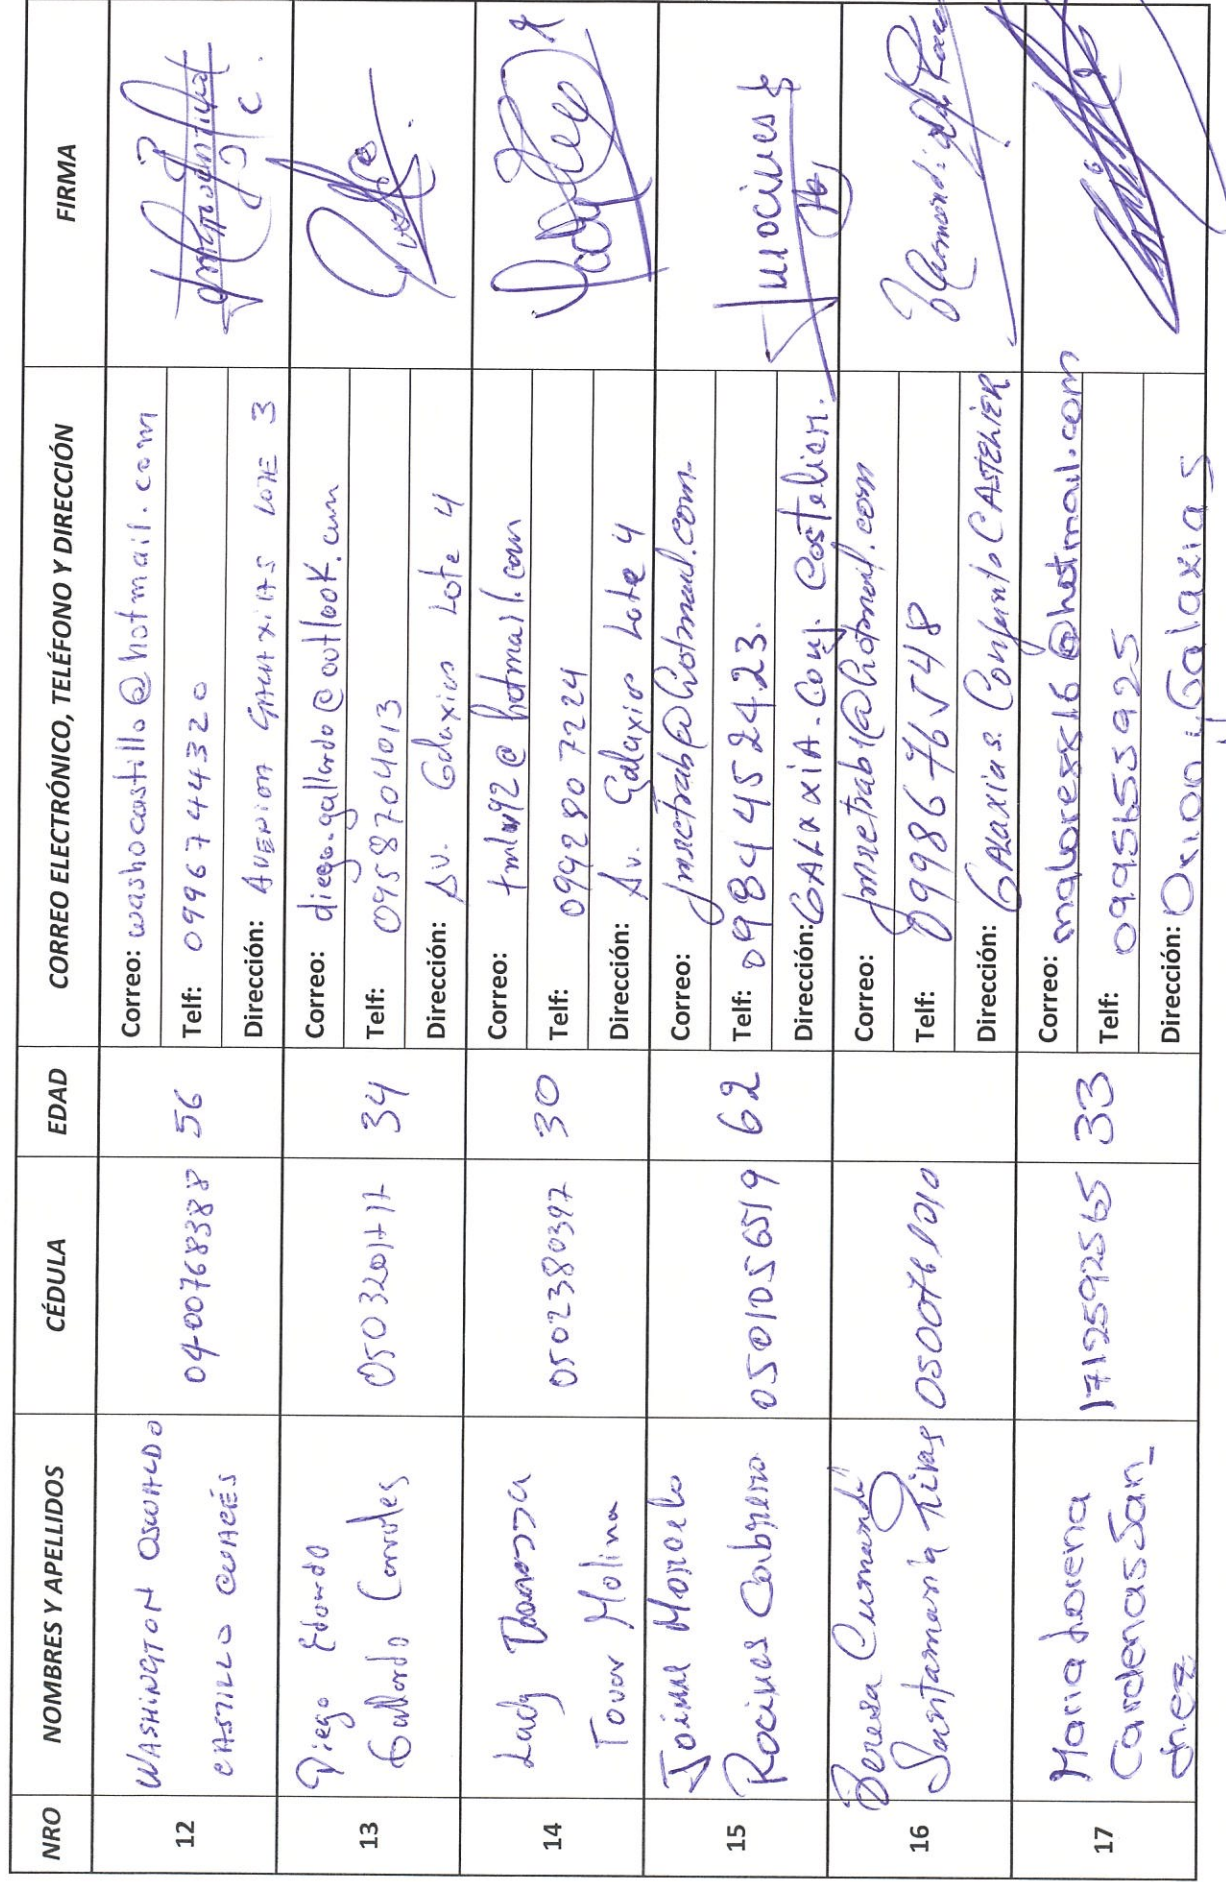 NRO NOMBRES Y APELLIDOS CÉDULA EDAD CORREO ELECTRÓNICO, TELÉFONO Y DIRECCIÓN FIRMA
12
WASHINGTON OSWALDO
CASTILLO
0400768388
56
Correo: washocastillo@hotmail.com
Telf: 0996744320
Dirección: AVENIDA GALAXIAS LOTE 3
13
Diego
Gallardo
34
Correo: diego.gallardo@outlook.com
Telf: 0958704013
Dirección: Av. Galaxias Lote 4
14
Lady
Tovar Molina
0502380397
30
Correo: @hotmail.com
Telf: 0992807224
Dirección: Av. Galaxias Lote 4
15
Jaime Marcelo
0501056519
62
Correo:
Telf: 0984452423.
Dirección: GALAXIA. Conj.
16
Teresa Cumandá
Santamaría Rivas
Correo:
Telf: 0998676548
Dirección: Galaxias. Conjunto
17
Maria Lorena
Cardenas San_
chez
1712592565
33
Correo: malores816@hotmail.com
Telf: 0995655925
Dirección: Orion y Galaxias